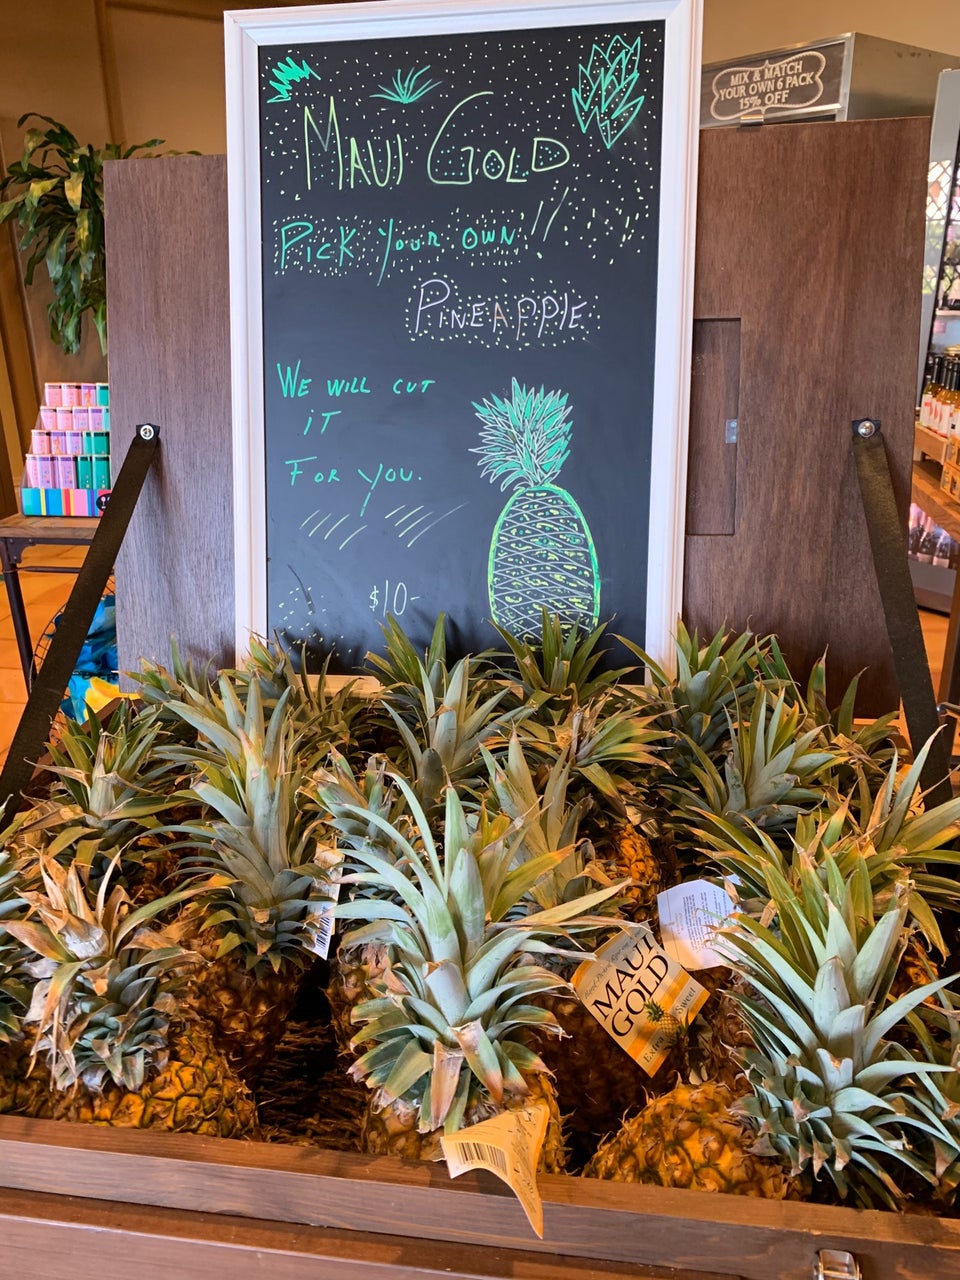 MIX & MATCH
YOUR OWN 6 PACK
15% OFF
MAUI GOLD
PICK YOUR OWN!!
PINEAPPLE
WE WILL CUT
IT
FOR YOU.
$10-
MAUI
GOLD
Extra Sweet